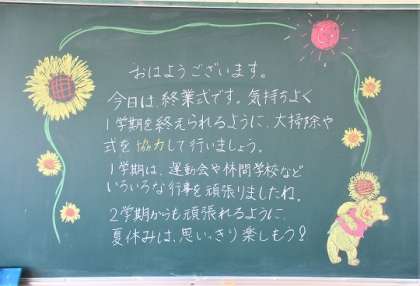 おはようございます。
今日は、終業式です。気持ちよく
1学期を終えられるように、大掃除や
式を協力して行いましょう。
1学期は、運動会や林間学校など
いろいろな行事を頑張りましたね。
2学期からも頑張れるように、
夏休みは、思いっきり楽しもう!